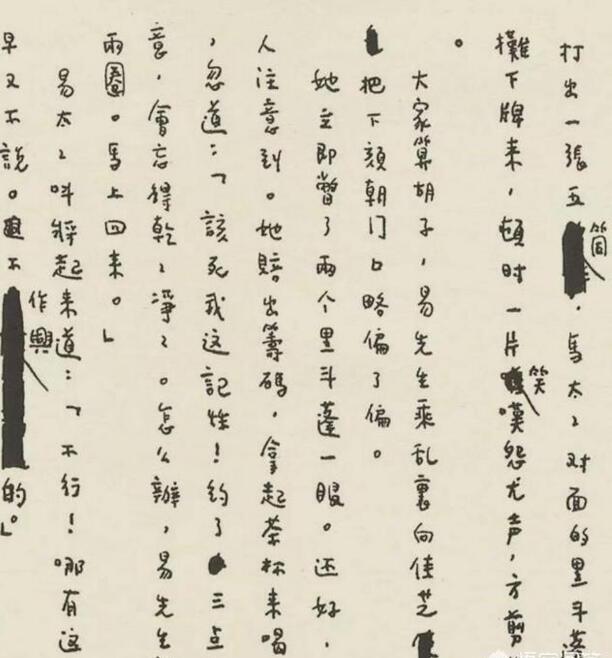 打出一張五筒,馬太〻对面的黑斗篷
攤下牌来,頓时一片笑嘆怨尤声,方剪
。
大家算胡子,易先生乘乱裏向佳芝
把下頦朝门口略偏了偏。
她立即瞥了兩个黑斗蓬一眼。还好,
人注意到。她賠出籌碼,拿起茶杯来喝
,忽道:「該死我这記性!約了三点
意,會忘得乾〻淨〻。怎么辦,易先生
兩圈。馬上回来。」
易太〻叫將起来道:「不行!哪有这
早又不說。不作興的。」